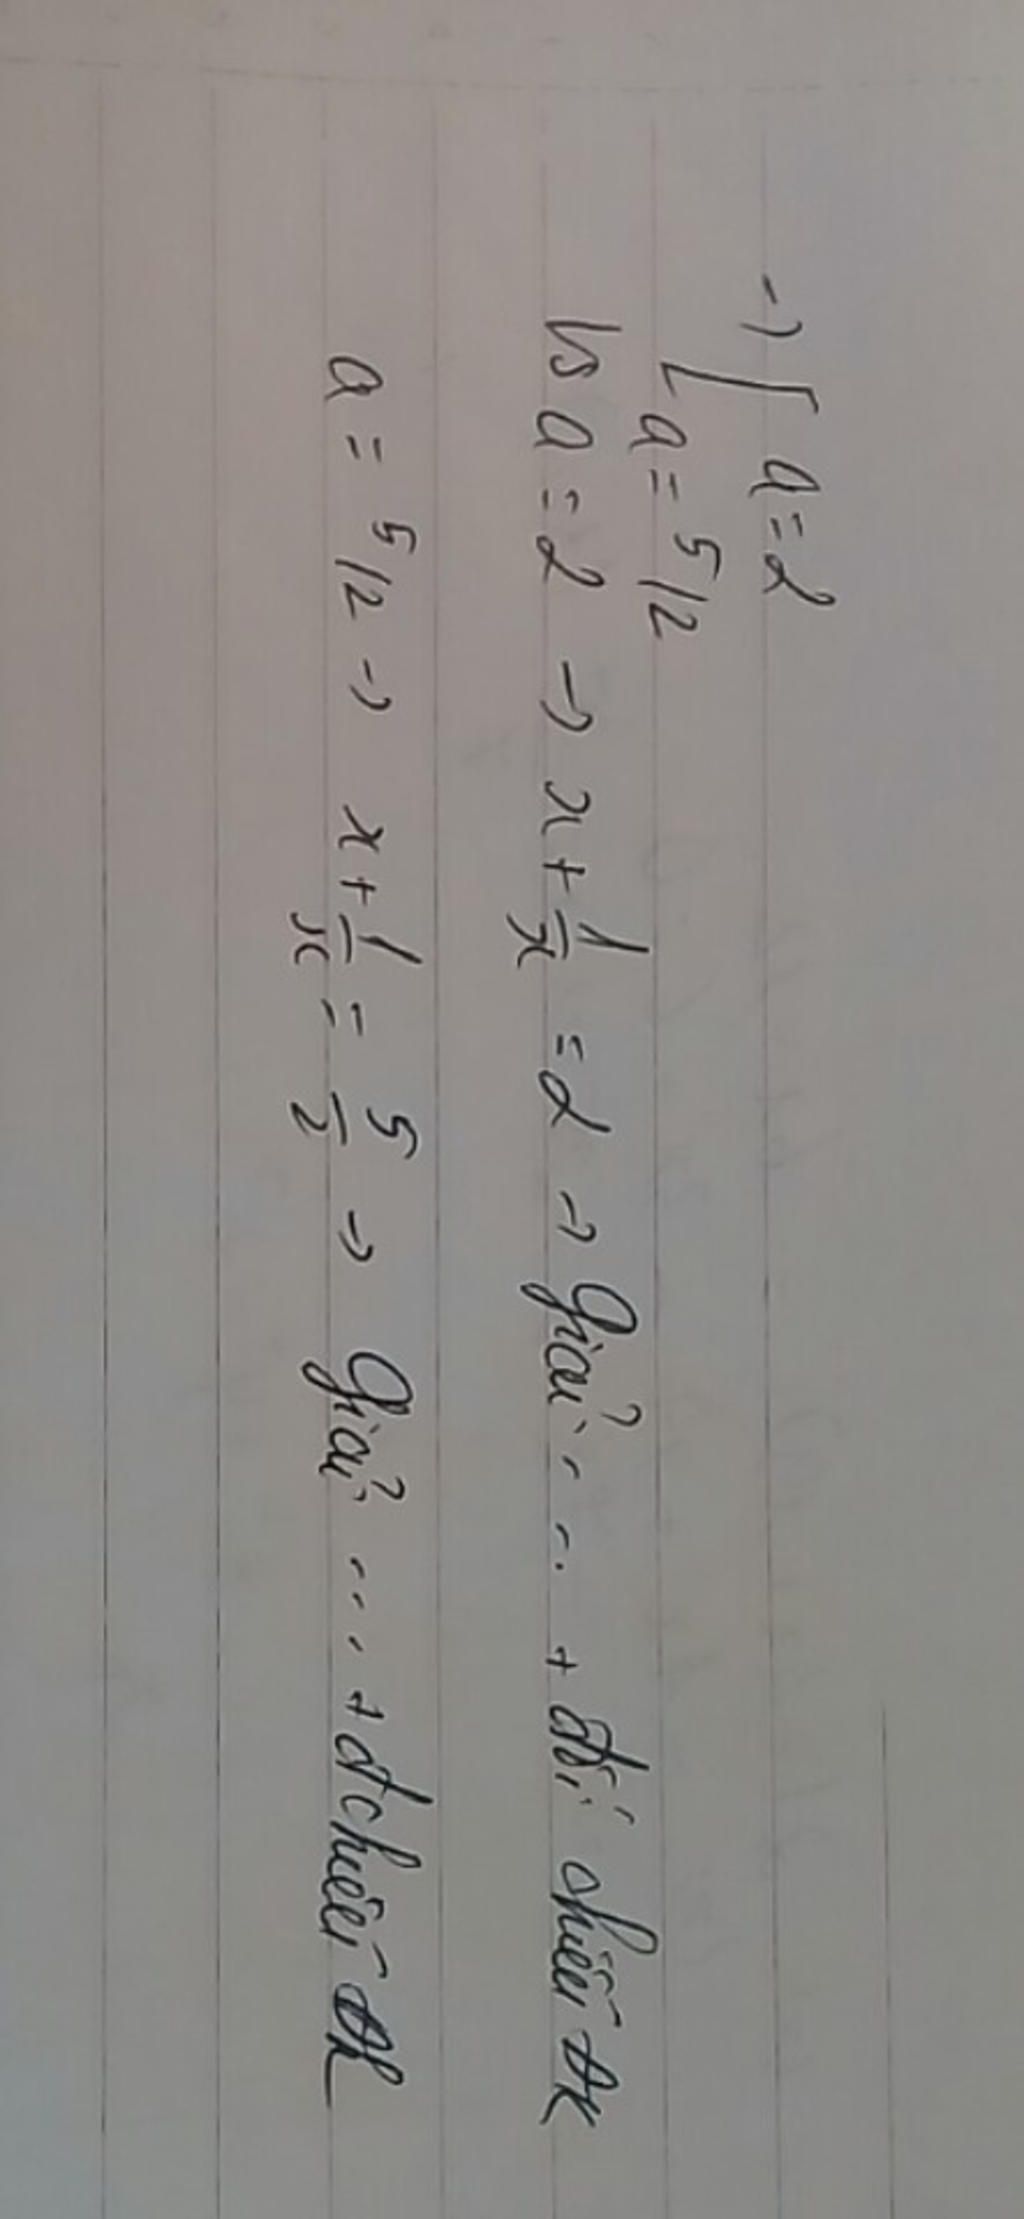 → [ a = 2
a = 5/2
Vs a = 2 → x + 1/x = 2 → Giải ... + đối chiếu đk
a = 5/2 → x + 1/x = 5/2 → Giải ... + đchiếu đk